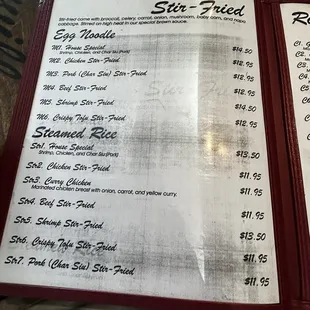 Stir-Fried
Stir-fried come with broccoli, celery, carrot, onion, mushroom, baby corn, and napa
cabbage. Stirred on high heat in our special brown sauce.
Egg Noodle
M1. House Special $14.50
Shrimp, Chicken, and Char Siu (Pork)
M2. Chicken Stir-Fried $12.95
M3. Pork (Char Siu) Stir-Fried $12.95
M4. Beef Stir-Fried $12.95
M5. Shrimp Stir-Fried $14.50
M6. Crispy Tofu Stir-Fried $12.95
Steamed Rice
Str1. House Special $13.50
Shrimp, Chicken, and Char Siu (Pork)
Str2. Chicken Stir-Fried $11.95
Str3. Curry Chicken $11.95
Marinated chicken breast with onion, carrot, and yellow curry.
Str4. Beef Stir-Fried $11.95
Str5. Shrimp Stir-Fried $13.50
Str6. Crispy Tofu Stir-Fried $11.95
Str7. Pork (Char Siu) Stir-Fried $11.95